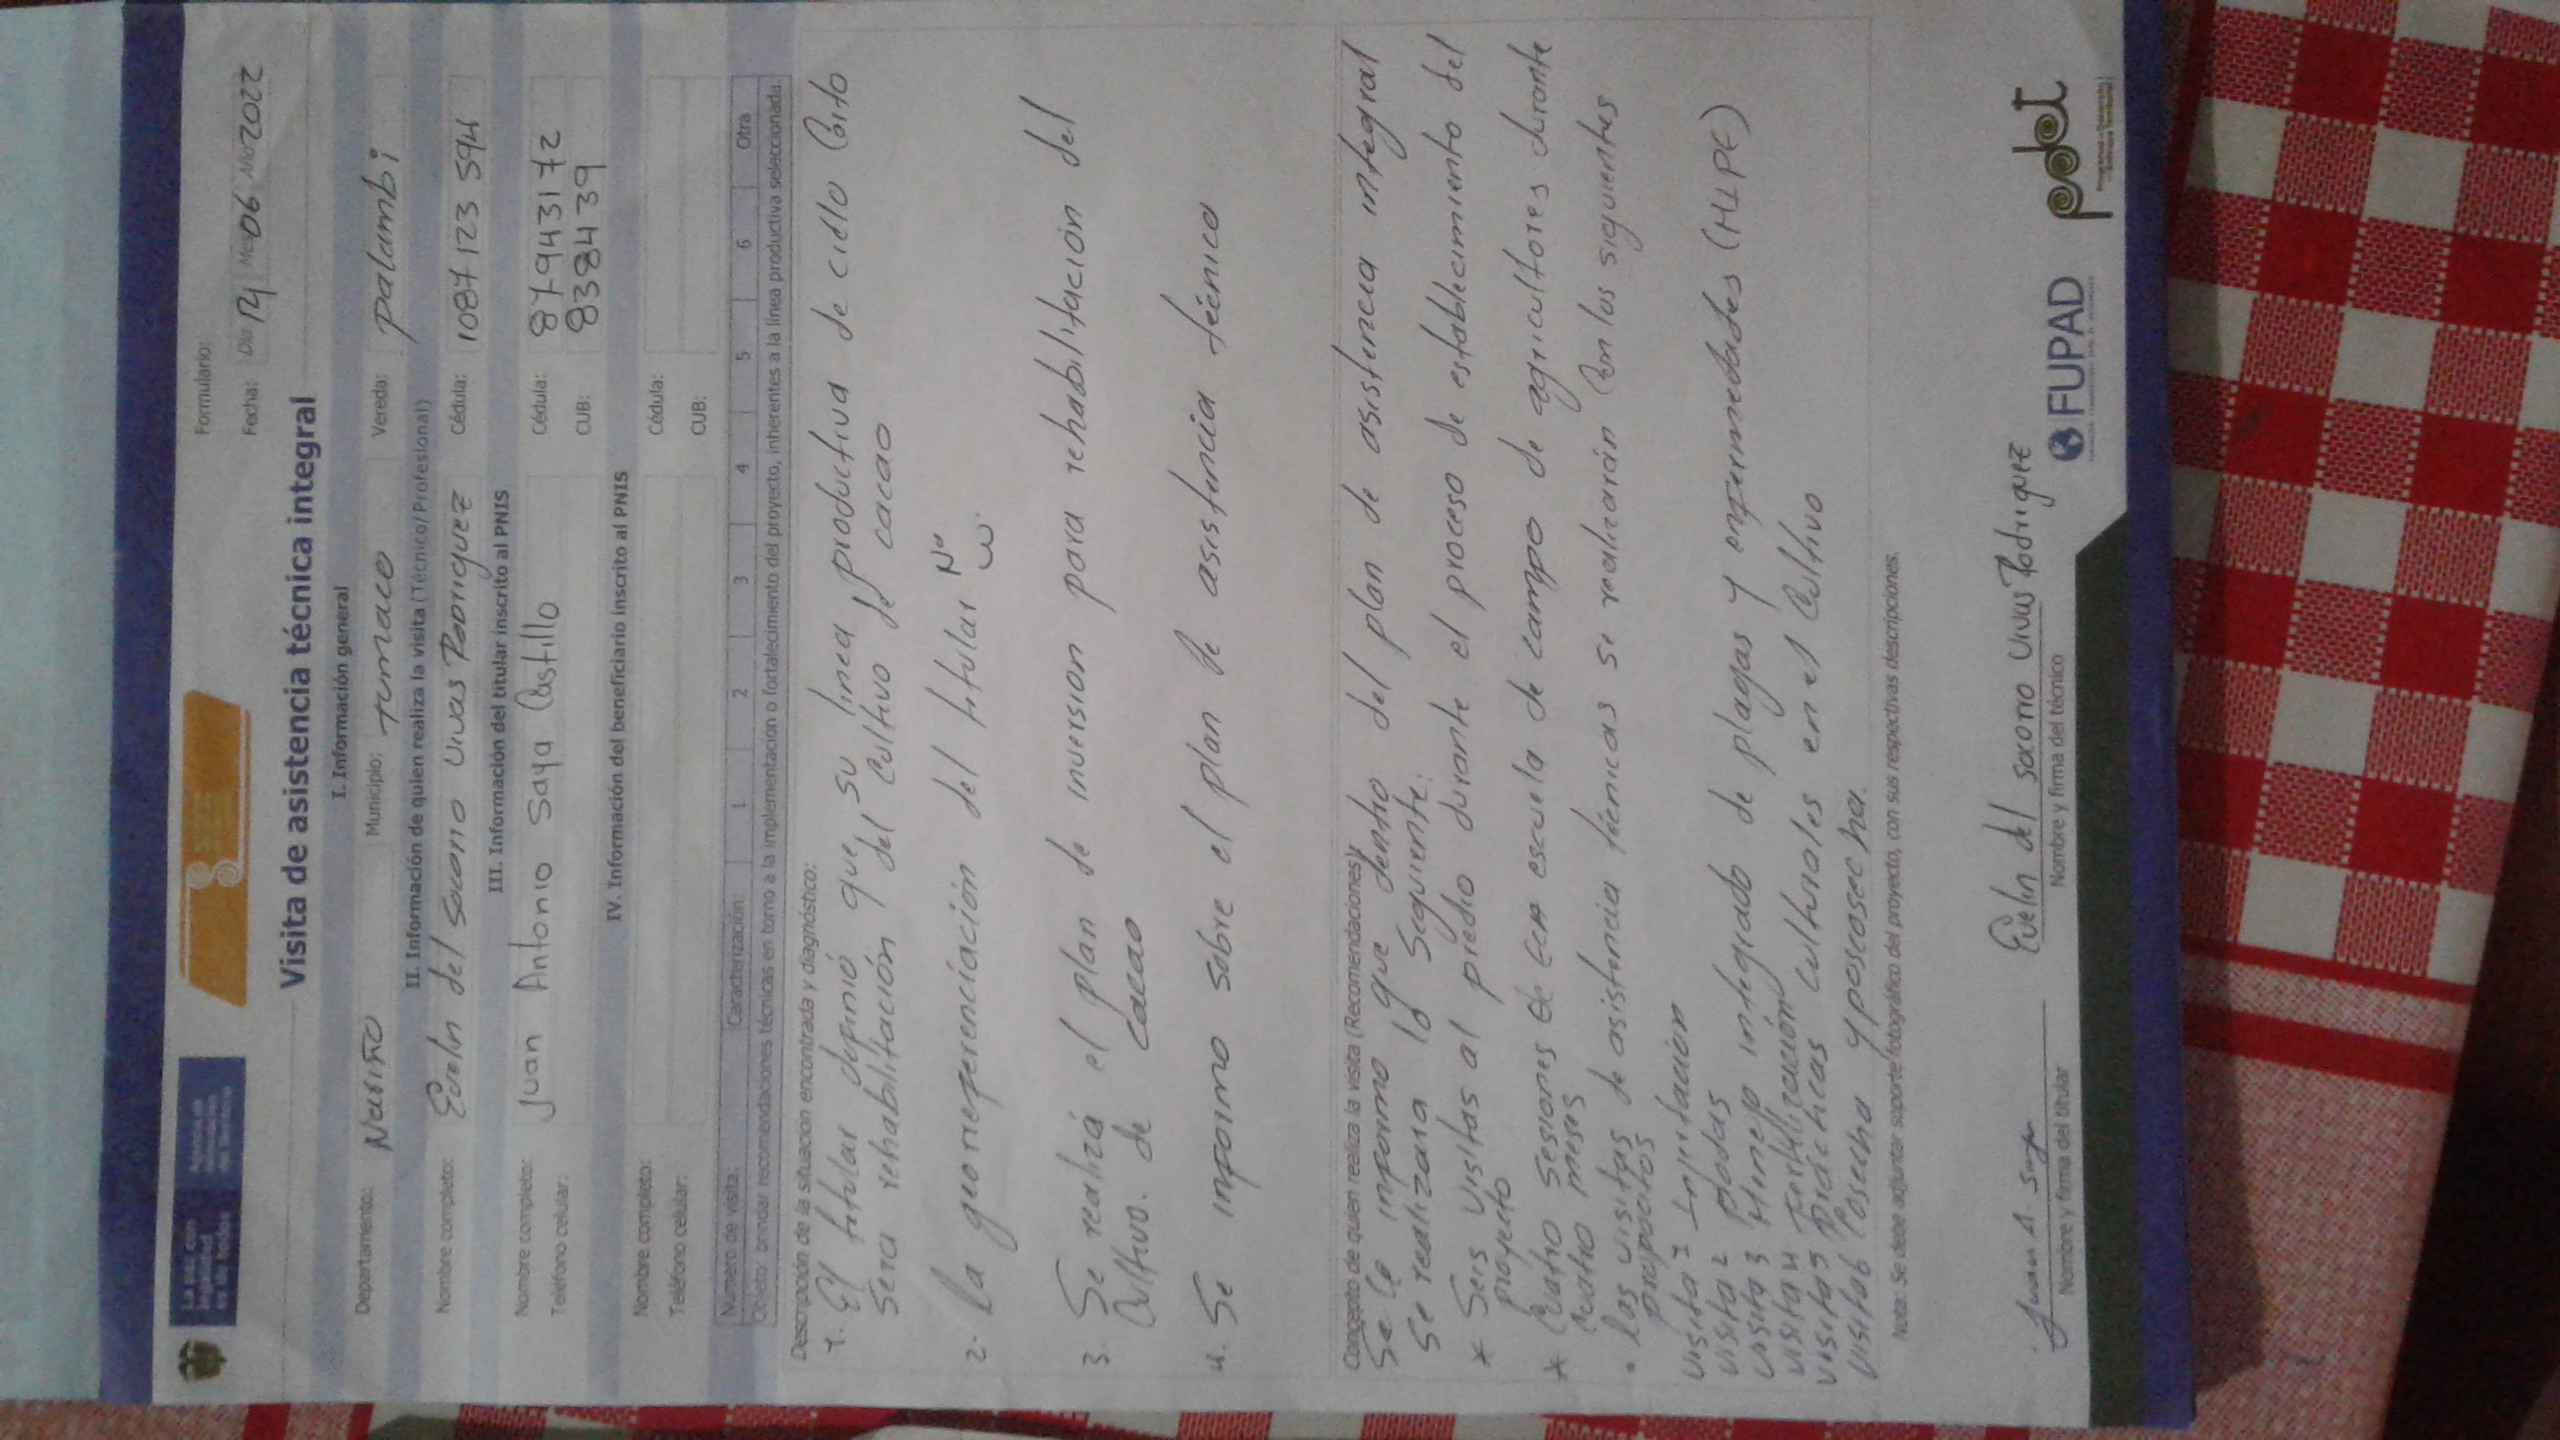 La paz con legalidad es de todos
Agencia de Renovación del Territorio
Formulario:
Fecha: Día 14 Mes 06 Año 2022
Visita de asistencia técnica integral
I. Información general
Departamento: Nariño Municipio: tumaco Vereda: palambi
II. Información de quien realiza la visita (Técnico/Profesional)
Nombre completo: Evelin del socorro vivas Rodriguez Cédula: 1087 123 594
III. Información del titular inscrito al PNIS
Nombre completo: Juan Antonio Saya Castillo Cédula: 87943172
Teléfono celular: CUB: 8384439
IV. Información del beneficiario inscrito al PNIS
Nombre completo: Cédula:
Teléfono celular: CUB:
Número de visita: Caracterización: 1 2 3 4 5 6 Otra
Objeto: brindar recomendaciones técnicas en torno a la implementación o fortalecimiento del proyecto, inherentes a la línea productiva seleccionada.
Descripción de la situación encontrada y diagnóstico:
1. El titular definió que su linea productiva de ciclo Corto
Sera rehabilitación del Cultivo de cacao
2. la georreferenciación del titular N°
W.
3. Se realizá el plan de inversion para rehabilitación del
Cultivo. de cacao
4. Se informo sobre el plan de asistencia técnico
Concepto de quien realiza la visita (Recomendaciones):
Se le informo que dentro del plan de asistencia integral
Se realizara lo Seguiente:
* Seis visitas al predio durante el proceso de establecimiento del
proyecto
* Cuatro Sesiones de ECA escuela de campo de agricultores durante
cuatro meses
• las visitas de asistencia técnicas se realizarán Con los siguientes
propocitos
visita 1 Injertación
visita 2 podas
visita 3 Manejo integrado de plagas y enfermedades (MIPE)
visita 4 Fertilización
visita 5 Prácticas culturales en el Cultivo
visita 6 Cosecha y poscosecha.
Nota: Se debe adjuntar soporte fotográfico del proyecto, con sus respectivas descripciones.
Juan A. Saya
Evelin del socorro vivas Rodriguez
Nombre y firma del titular
Nombre y firma del técnico
FUPAD
pdet